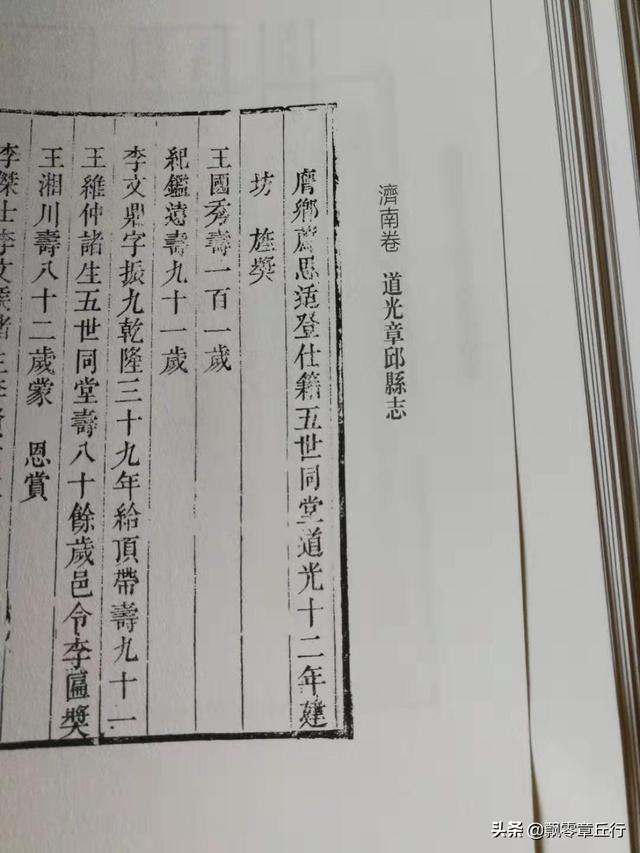 濟南卷 道光章邱縣志
膺鄉薦思适登仕籍五世同堂道光十二年建
坊旌獎
王國秀壽一百一歲
紀鑑遠壽九十一歲
李文鼎字振九乾隆三十九年給頂帶壽九十一
王維仲諸生五世同堂壽八十餘歲邑令李匾奬
王湘川壽八十二歲蒙 恩賞
李傑士李文
头条 @飘零章丘行